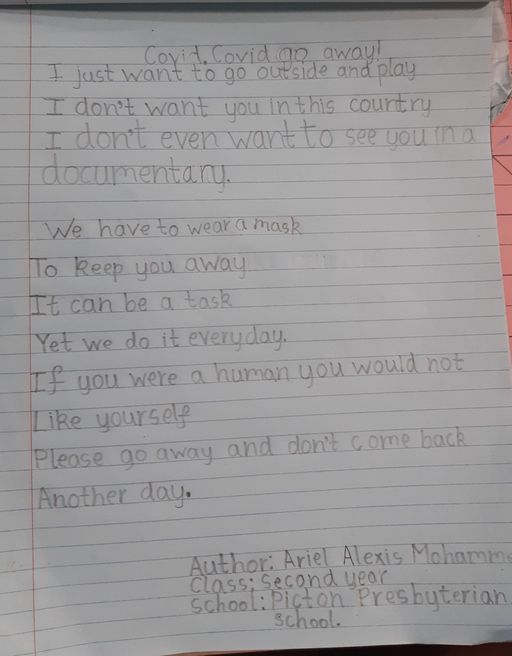 Covid, Covid go away!
I just want to go outside and play
I don't want you in this country
I don't even want to see you in a
documentary.
We have to wear a mask
To keep you away
It can be a task
Yet we do it everyday.
If you were a human you would not
Like yourself
Please go away and don't come back
Another day.
Author: Ariel Alexis Mohamme
Class: Second year
School: Picton Presbyterian
School.